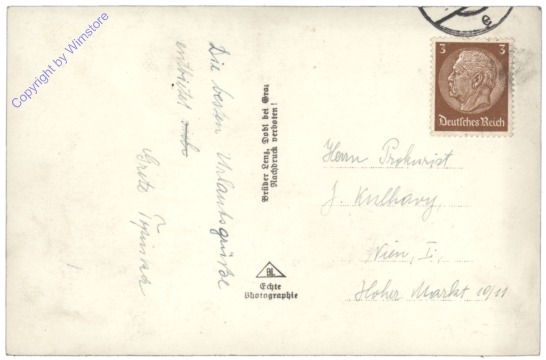 Copyright by Wimstore
Die besten Urlaubsgrüße
entbietet
Grete
Brüder Lenz, Dobl bei Graz
Nachdruck verboten!
BL
Echte
Photographie
3 3
Deutsches Reich
Herrn Prokurist
J. Kulhavy,
Wien, I.,
Hoher Markt 10/11